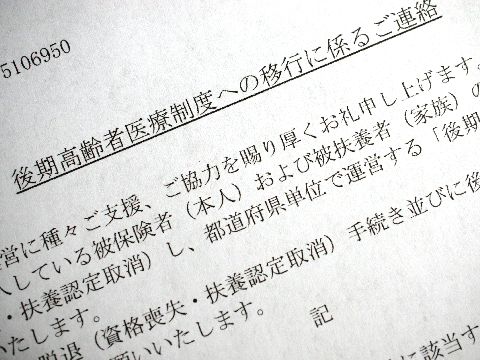 5106950
後期高齢者医療制度への移行に係るご連絡
営に種々ご支援、ご協力を賜り厚くお礼申し上げます。
入している被保険者（本人）および被扶養者（家族）の
・扶養認定取消）し、都道府県単位で運営する「後期
いたします。
脱退（資格喪失・扶養認定取消）手続き並びに後
願いいたします。
記
に該当す